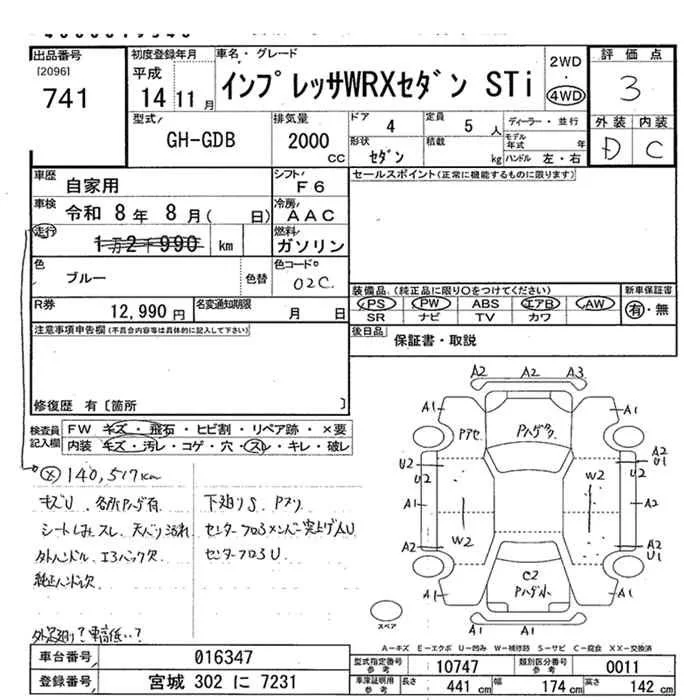 出品番号
[2096]
741
初度登録年月
平成
14 11月
車名・グレード
インプレッサWRXセダン STi
2WD
・
4WD
評価点
3
外装 内装
D C
型式
GH-GDB
排気量
2000
CC
ドア 4
定員 5 人
形状 セダン
積載 kg
ディーラー・並行
モデル年式 年
ハンドル 左・右
車歴
自家用
シフト
F6
セールスポイント(正常に機能するものに限ります)
車検
令和 8年 8月( 日)
冷房
AAC
走行
1万2千990 km
燃料
ガソリン
色
ブルー
色替
色コードNo
02C
装備品 (純正品に限り○をつけてください)
PS PW ABS エアB AW
SR ナビ TV カワ
新車保証書
有・無
R券
12,990円
名変通知期限
月 日
後日品
保証書・取説
注意事項申告欄(不具合内容等は具体的に記入して下さい)
修復歴 有〔箇所 〕
検査員記入欄
FW キズ・飛石・ヒビ割・リペア跡・×要
内装 キズ・汚レ・コゲ・穴・スレ・キレ・破レ
× 140,517km
キズU. 各所Pハゲ有
シートしみ、スレ 天バリ汚れ
外ハンドル、エ
純正ハンドル欠
下廻りS. Pヌリ
センターフロアメンバー突上げAU
センターフロアU
車高低い?
A2 A2 A3
A1 A1
Pアセ
Pハゲ
U2 U2
W2
U2
A2
U1
A1
A2
W2
A2
A2
U1
C2
Pハゲ小
A1 A1
スペア
A-キズ E-エクボ U-凹み W-補修跡 S-サビ C-腐食 XX-交換済
車台番号
016347
登録番号
宮城 302 に 7231
型式指定番号
参考
10747
類別区分番号
参考
0011
車庫証明用
参考
長さ 441 cm
幅 174 cm
高さ 142 cm